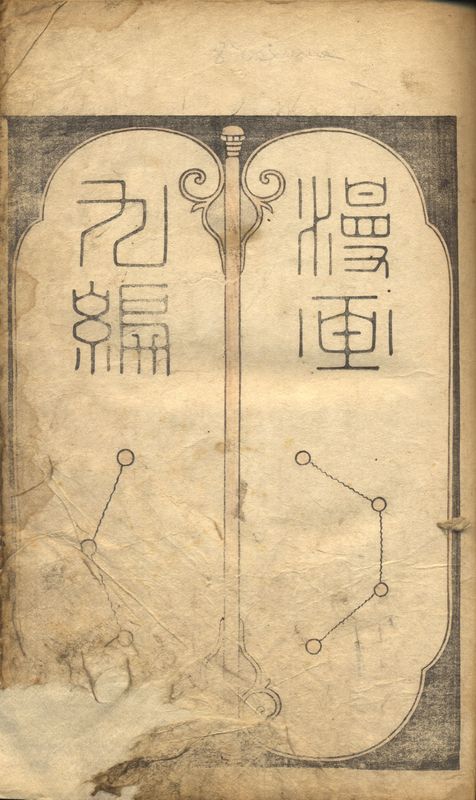 漫画
九編